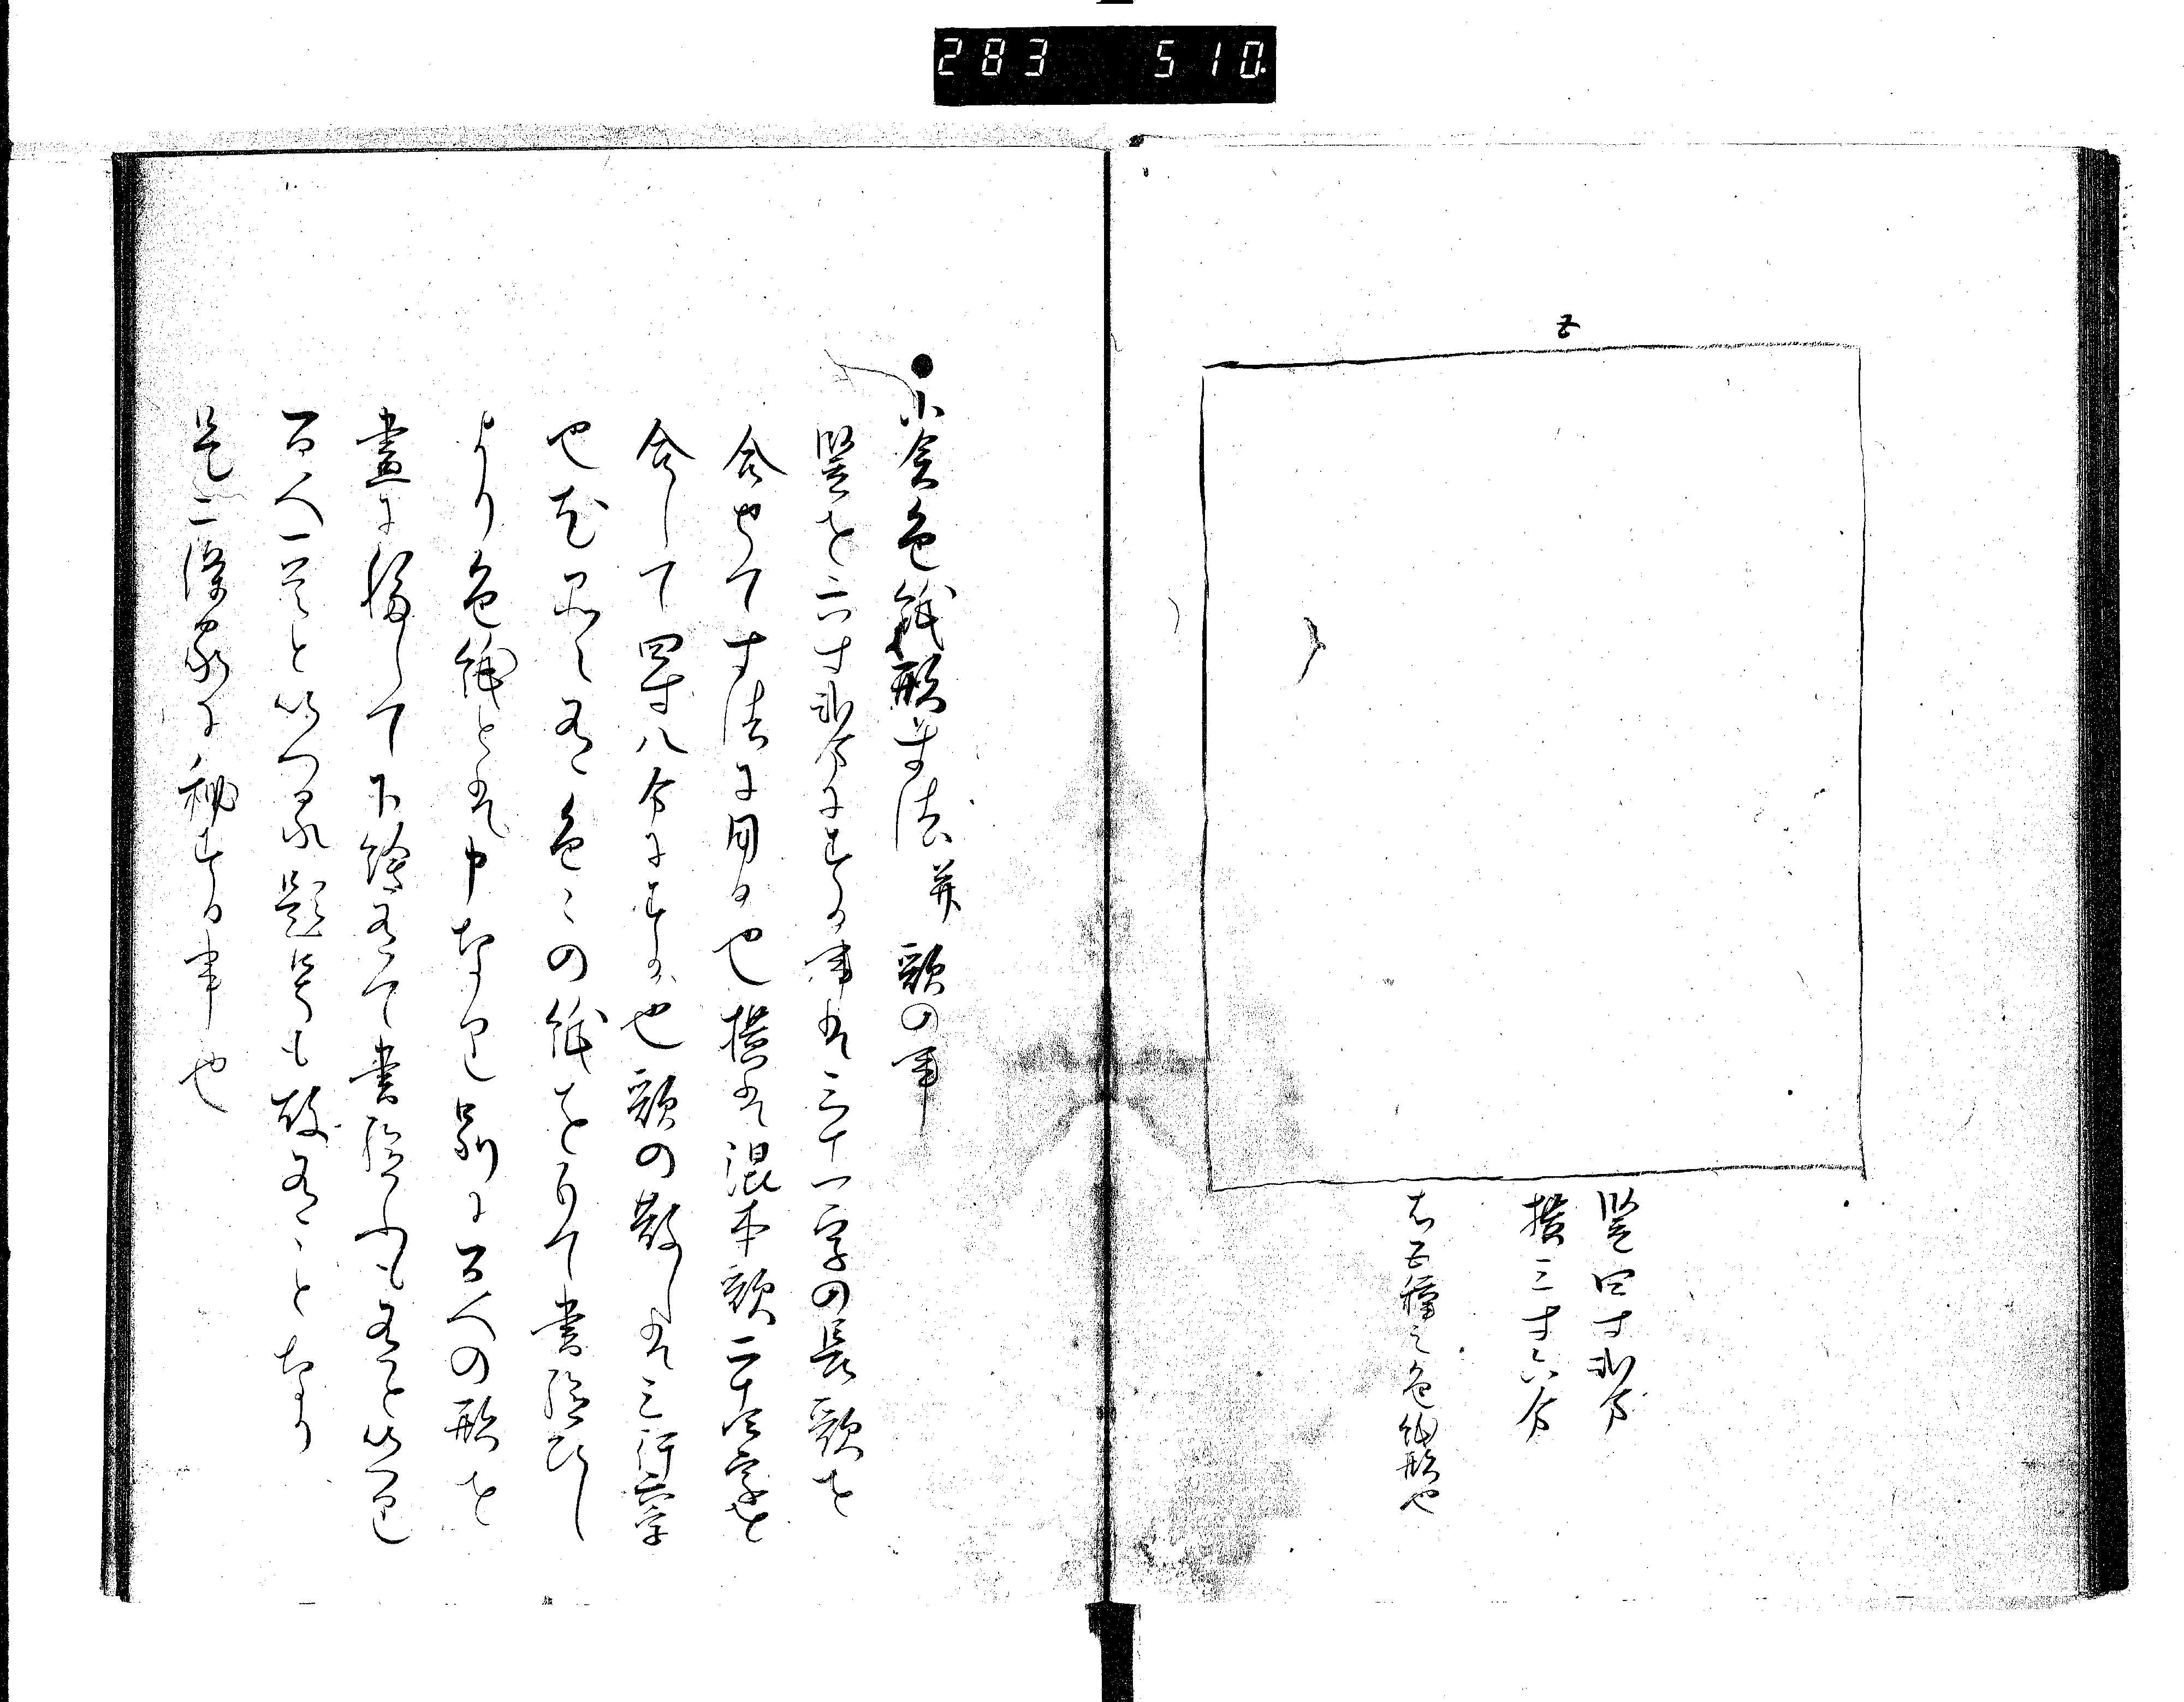 283 510.
五
竪四寸弐分
横三寸六分
右五種之色紙形也
小倉色紙形寸法并歌の事
竪を六寸弐分にする事は三十一字の長歌を
合せて寸法に用る也横は混本歌二十四字を
合して四寸八分にする也歌の散しは三行三字
也むかしは色〻の紙をもて書給ひし
より色紙とは申なり別に百人の形を
尽に移して下絵にて書給ふもあるといへり
百人一首といへる題号も故あることなり
是二條家に秘する事也